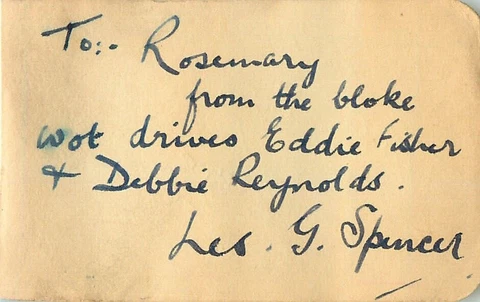 To:- Rosemary
from the bloke
wot drives Eddie Fisher
& Debbie Reynolds.
Les. G. Spencer